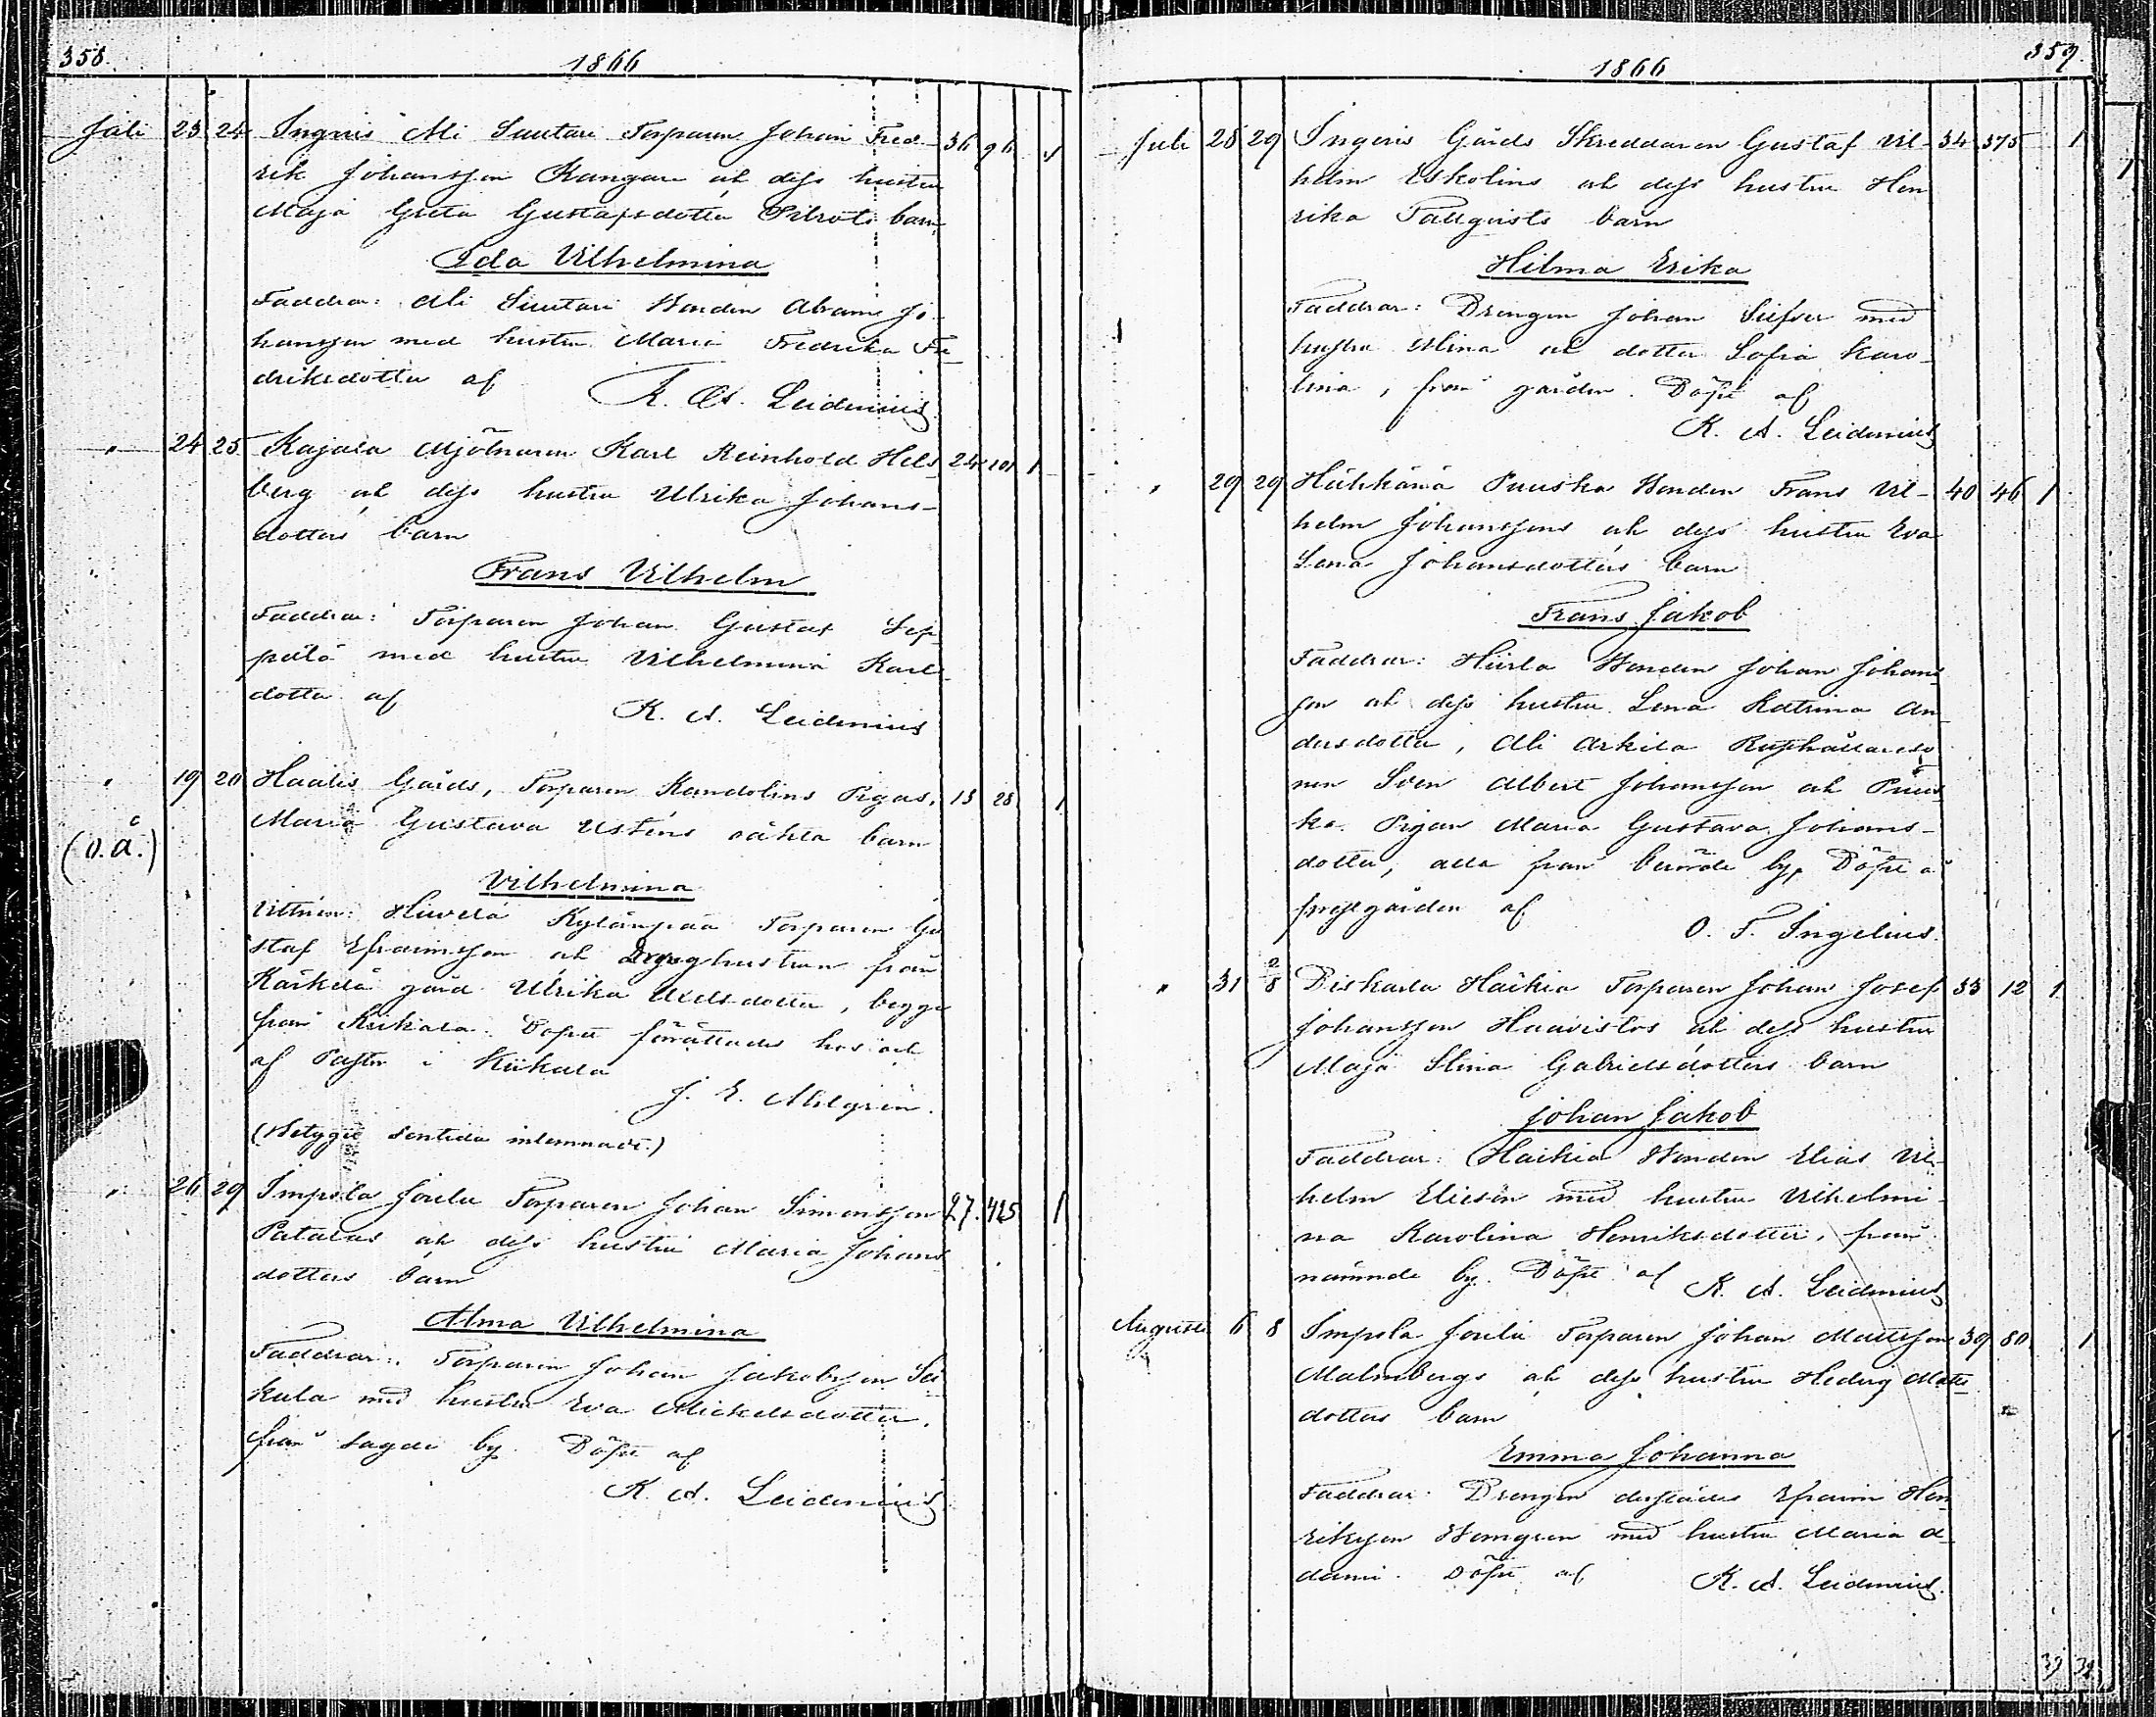 358.
1866
Juli 23 24 Ingeris Ali Suutari Torparen Johan Fred- 36 96 1
rik Johansson Kangare och dess hustru
Maja Greta Gustafsdotter barn
Ida Vilhelmina
Faddrar: Ali Suutari Bonden Abram Jo-
hansson med hustru Maria Fredrika Fre-
driksdotter af K. A. Leidenius
" 24 25 Kajala Mjölnaren Karl Reinhold Hels- 24 101 1
berg och dess hustru Ulrika Johans-
dotters barn
Frans Vilhelm
Faddrar: Torparen Johan Gustaf Sep-
pälä med hustru Vilhelmina Karls-
dotter af K. A. Leidenius
" 19 20 Haalis Gårds, Torparen Randolins Pigas, 13 28 1
(o. ä.) Maria Gustava Usténs oäkta barn
Vilhelmina
Vittnen: Hiwelä Kylänpää Torparen Gu-
staf Efraimsson och hustrun från
Kärkelä gård Ulrika Axelsdotter, begge
från Kiikala. Dopet förättades hos och
af Pastor i Kiikala
J. E. Ahlgrén.
(Betyget sentida inlemnadt.)
" 26 29 Impola Jorila Torparen Johan Simonsson 27. 425 1
Patalas och dess hustru Maria Johans-
dotters barn
Alma Vilhelmina
Faddrar: Torparen Johan Jakobsson Sei-
kula med hustru Eva Mickelsdotter,
från sagde by. Döpt af
K. A. Leidenius
359.
1866
Juli 28 29 Ingeris Gårds Skreddaren Gustaf Vil- 34 375 1
helm Eskolins och dess hustru Hen
rika Tallqvists barn
Hilma Erika
Faddrar: Drengen Johan med
hustru Stina och dotter Sofia Karo-
lina, från gården. Döpt af
K. A. Leidenius
" 29 29 Hähkänä Puuska Bonden Frans Vil- 40 46 1
helm Johanssons och dess hustru Eva
Lena Johansdotters barn
Frans Jakob
Faddrar: Hiirla Bonden Johan Johans-
son och dess hustru Lena Katrina An-
dersdotter, Ali Arkila Rusthållareso-
nen Sven Albert Johansson och Puus-
ka Pigan Maria Gustava Johans-
dotter, alla från berörde by. Döpt å
prestgården af
O. F. Ingelius.
" 31 2/8 Diskarla Haikia Torparen Johan Josef 33 12 1
Johansson Haavistos och dess hustru
Maja Stina Gabrielsdotters barn
Johan Jakob
Faddrar: Haikia Bonden Elias Vil-
helm Eliesén med hustru Vilhelmi-
na Karolina Henriksdotter, från
nämnde by. Döpt af K. A. Leidenius
Augusti 6 8 Impola Jorila Torparen Johan Mattsson 39 80 1
Malmbergs och dess hustru Hedvig Matts-
dotters barn
Emma Johanna
Faddrar: Drengen dersstädes Efraim Hen-
riksson med hustru Maria A-
dami. Döpt af K. A. Leidenius.